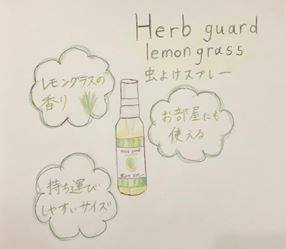 Herb guard
lemongrass
虫よけスプレー
レモングラスの
香り
お部屋にも
使える
持ち運び
しやすいサイズ